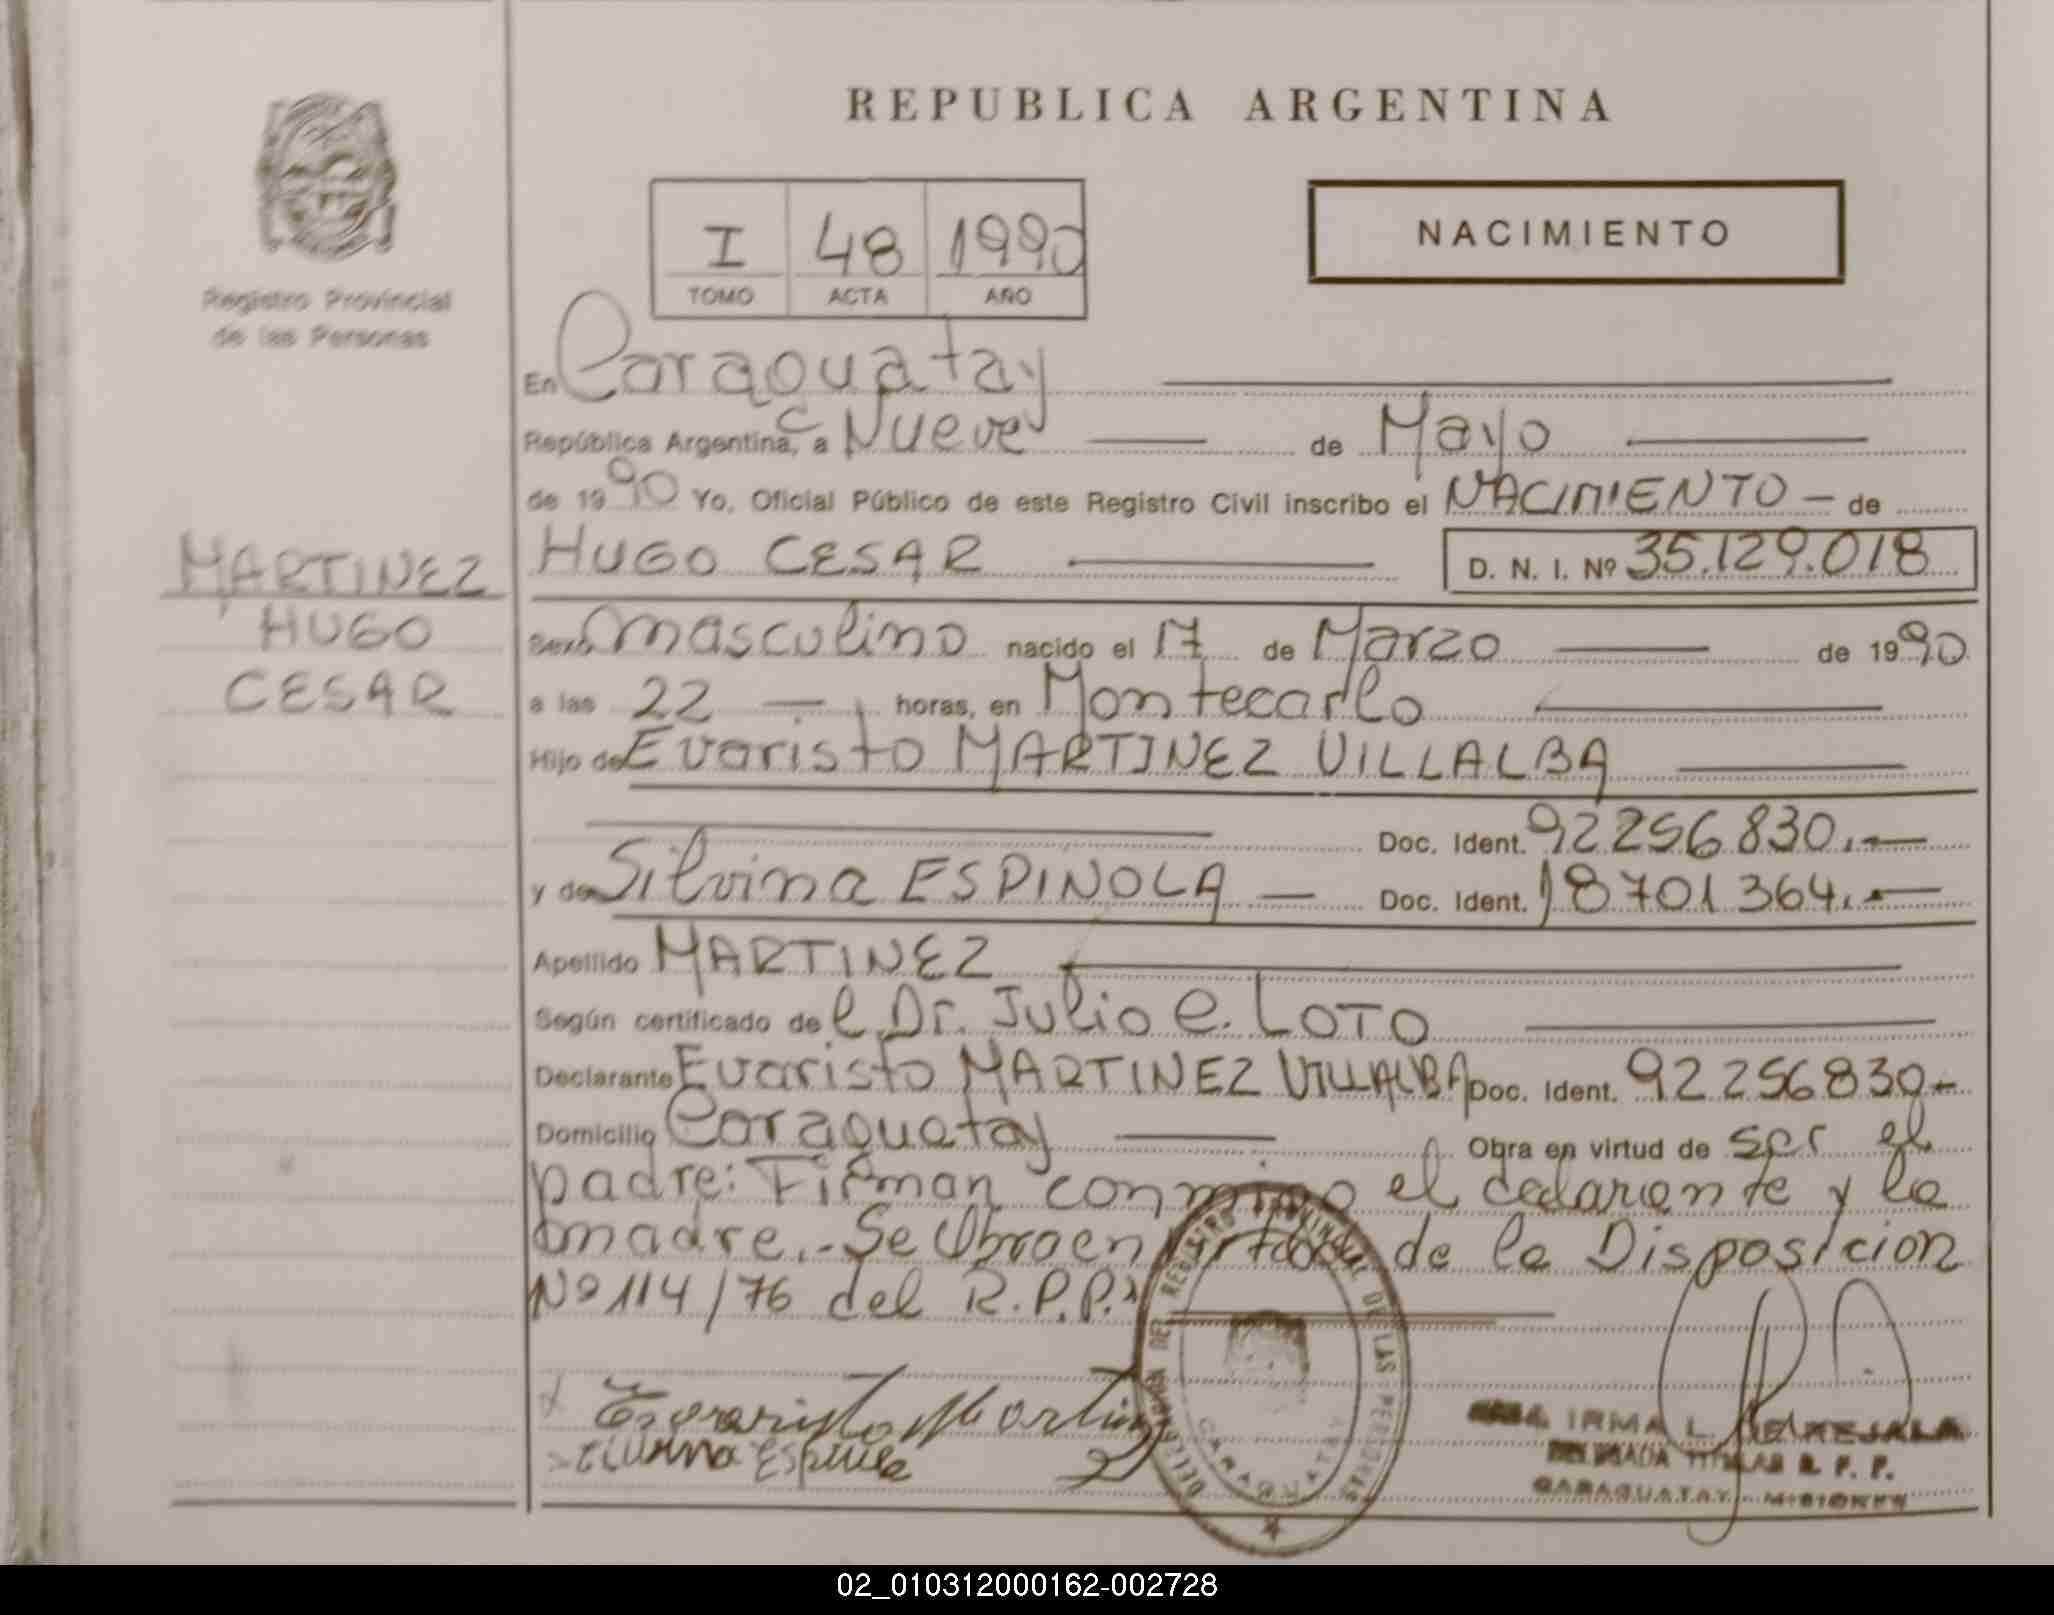 REPUBLICA ARGENTINA
NACIMIENTO
I 48 1990
TOMO ACTA AÑO
Registro Provincial
de las Personas
En Caraguatay
República Argentina, a Nueve de Mayo
de 1990 Yo, Oficial Público de este Registro Civil inscribo el NACIMIENTO - de
MARTINEZ
HUGO
CESAR
HUGO CESAR D. N. I. Nº 35.129.018
Sexo masculino nacido el 17 de Marzo de 1990
a las 22 horas, en Montecarlo
Hijo de Evaristo MARTINEZ VILLALBA
Doc. Ident. 92256830.-
y de Silvina ESPINOLA - Doc. Ident. 18701364.-
Apellido MARTINEZ
Según certificado del Dr. Julio e. LOTO
Declarante Evaristo MARTINEZ VILLALBA Doc. Ident. 92256830-
Domicilio Caraguatay Obra en virtud de ser el
padre: Firman conmigo el declarante y la
madre.- Se Obra en virtud de la Disposicion
Nº 114/76 del R.P.P.
Evaristo Martinez
DELEGACION DEL REGISTRO PROVINCIAL DE LAS PERSONAS
CARAGUATAY
IRMA L.
TITULAR R. P. P.
CARAGUATAY - MISIONES
02_010312000162-002728